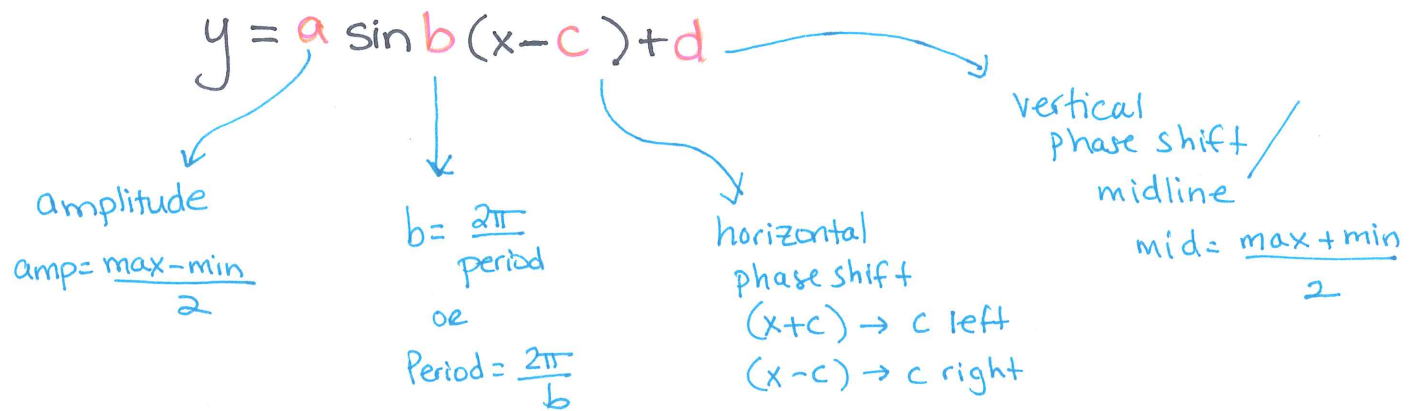 y = a sin b(x-c)+d
amplitude
amp = max-min
2
b = 2π
period
or
Period = 2π
b
horizontal
phase shift
(x+c) → c left
(x-c) → c right
vertical
phase shift /
midline
mid = max + min
2